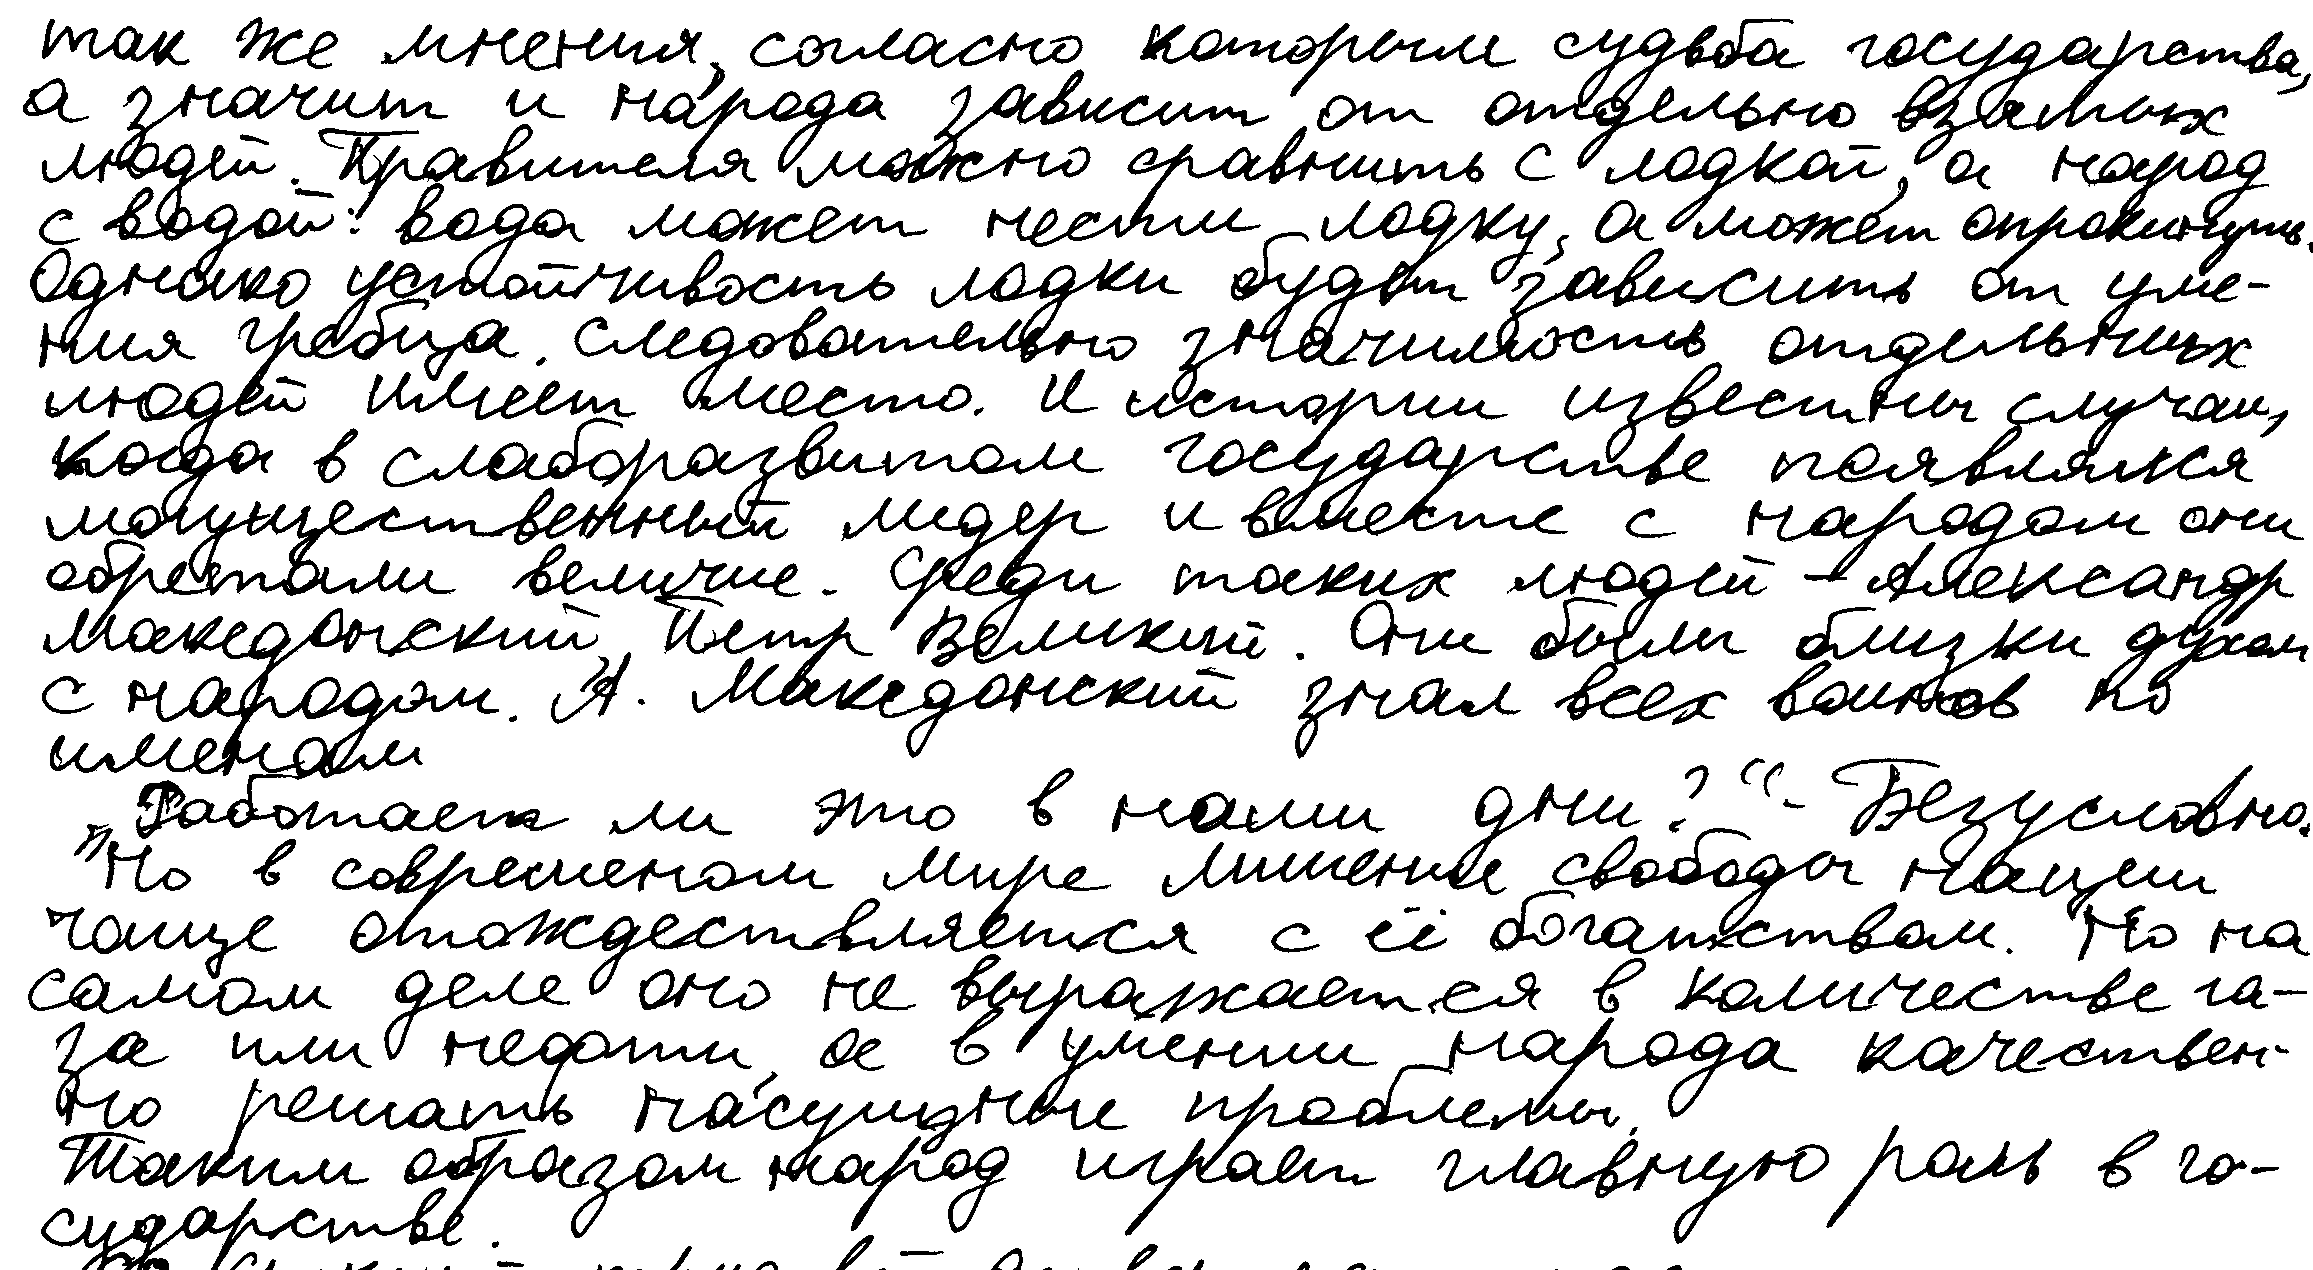 так же мнения, согласно которым судьба государства,
а значит и народа зависит от отдельно взятых
людей. Правителя можно сравнить с лодкой, а народ
с водой: вода может нести лодку, а может опрокинуть.
Однако устойчивость лодки будет зависить от уме-
ния гребца. Следовательно значимость отдельных
людей имеет место. И истории известны случаи,
когда в слаборазвитом государстве появлялся
могущественный лидер и вместе с народом они
обретали величие. Среди таких людей – Александр
Македонский, Петр Великий. Они были близки духом
с народом. А. Македонский знал всех воинов по
именам
„Работает ли это в наши дни?“ - Безусловно.
Но в современом мире лишение свободы нации
чаще отождествляется с её богатством. Но на
самом деле оно не выражается в количестве га-
за или нефти, а в умении народа качествен-
но решать насущные проблемы.
Таким образом народ играет главную роль в го-
сударстве.